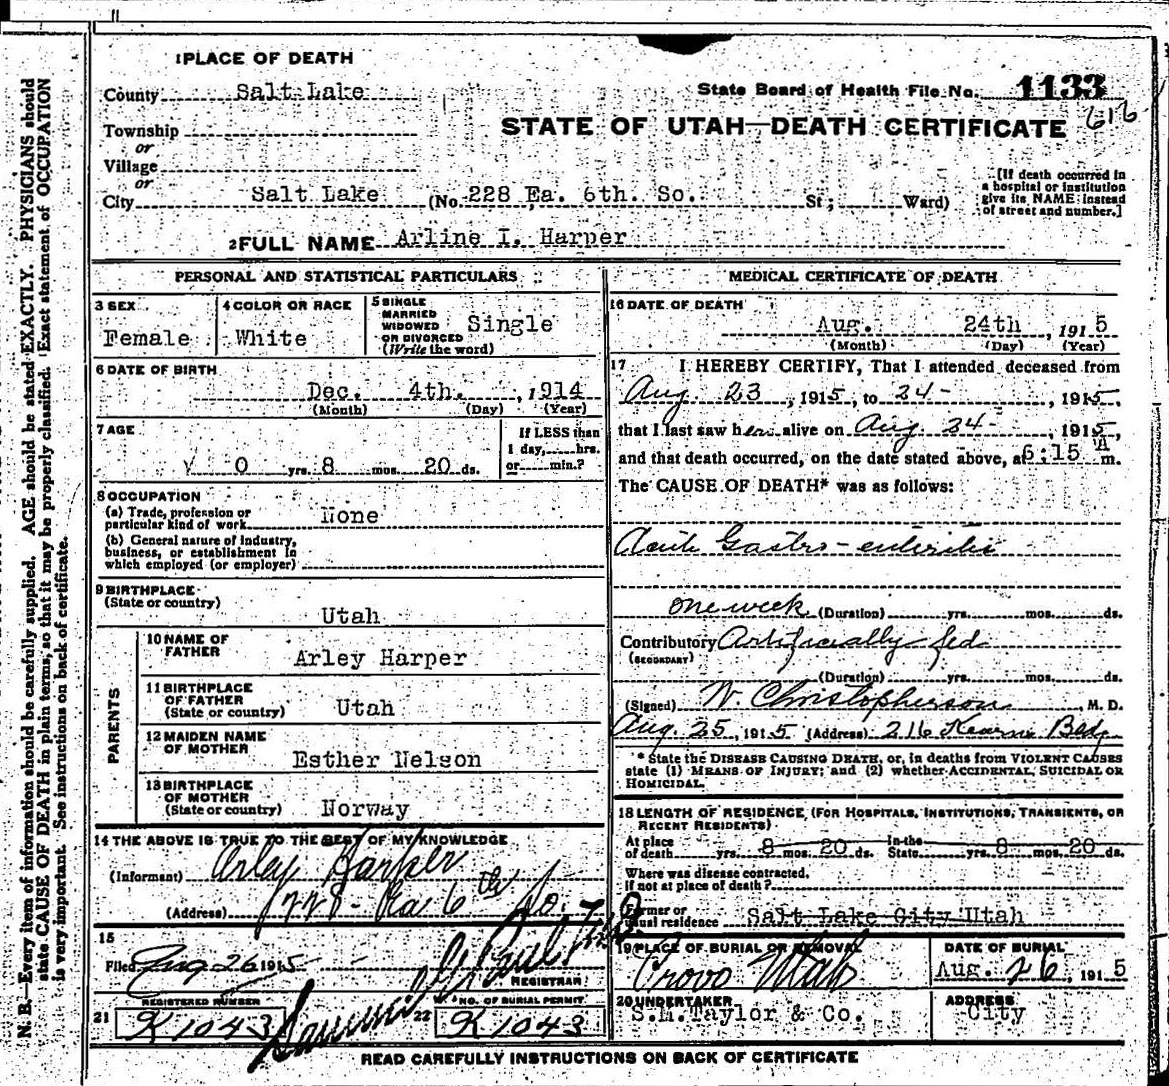 1 PLACE OF DEATH
County Salt Lake
State Board of Health File No. 1133
616
Township
or
Village
or
STATE OF UTAH—DEATH CERTIFICATE
City Salt Lake (No. 228 Ea. 6th. So. St; Ward)
[If death occurred in
a hospital or institution
give its NAME instead
of street and number.]
2 FULL NAME Arline I. Harper
PERSONAL AND STATISTICAL PARTICULARS
3 SEX
Female
4 COLOR OR RACE
White
5 SINGLE
MARRIED
WIDOWED
OR DIVORCED
(Write the word)
Single
6 DATE OF BIRTH
Dec. 4th. , 1914
(Month) (Day) (Year)
7 AGE
0 yrs. 8 mos. 20 ds.
If LESS than
1 day, hrs.
or min.?
8 OCCUPATION
(a) Trade, profession or
particular kind of work None
(b) General nature of industry,
business, or establishment in
which employed (or employer)
9 BIRTHPLACE
(State or country)
Utah
PARENTS
10 NAME OF
FATHER
Arley Harper
11 BIRTHPLACE
OF FATHER
(State or country)
Utah
12 MAIDEN NAME
OF MOTHER
Esther Nelson
13 BIRTHPLACE
OF MOTHER
(State or country)
Norway
14 THE ABOVE IS TRUE TO THE BEST OF MY KNOWLEDGE
(Informant) Arley Harper
(Address) 228 - Ea 6th So.
15
Filed Aug 26 1915
REGISTRAR
REGISTERED NUMBER
21 K 1043
22 NO. OF BURIAL PERMIT
K 1043
MEDICAL CERTIFICATE OF DEATH
16 DATE OF DEATH
Aug. 24th , 1915
(Month) (Day) (Year)
17 I HEREBY CERTIFY, That I attended deceased from
Aug. 23 , 1915, to 24 - , 1915,
that I last saw her alive on Aug. 24 - , 1915,
and that death occurred, on the date stated above, at 6:15 A m.
The CAUSE OF DEATH* was as follows:
Acute Gastro-enteritis
one week (Duration) yrs. mos. ds.
Contributory Artificially fed
(SECONDARY)
(Duration) yrs. mos. ds.
(Signed) W. Christopherson , M. D.
Aug. 25, 1915 (Address) 216 Kearns Bldg
* State the DISEASE CAUSING DEATH, or, in deaths from VIOLENT CAUSES
state (1) MEANS OF INJURY; and (2) whether ACCIDENTAL, SUICIDAL OR
HOMICIDAL.
18 LENGTH OF RESIDENCE (FOR HOSPITALS, INSTITUTIONS, TRANSIENTS, OR
RECENT RESIDENTS)
At place
of death yrs. 8 mos. 20 ds. In the
State yrs. 8 mos. 20 ds.
Where was disease contracted,
if not at place of death?
Former or
usual residence Salt Lake City Utah
19 PLACE OF BURIAL OR REMOVAL
Provo Utah
DATE OF BURIAL
Aug. 26 , 1915
20 UNDERTAKER
S.M. Taylor & Co.
ADDRESS
City
READ CAREFULLY INSTRUCTIONS ON BACK OF CERTIFICATE
N. B.—Every item of information should be carefully supplied. AGE should be stated EXACTLY. PHYSICIANS should
state CAUSE OF DEATH in plain terms, so that it may be properly classified. Exact statement of OCCUPATION
is very important. See instructions on back of certificate.